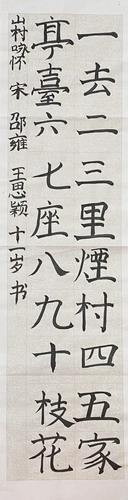 一去二三里煙村四五家
亭臺六七座八九十枝花
山村咏怀 宋 邵雍 王思颖 十一岁 书